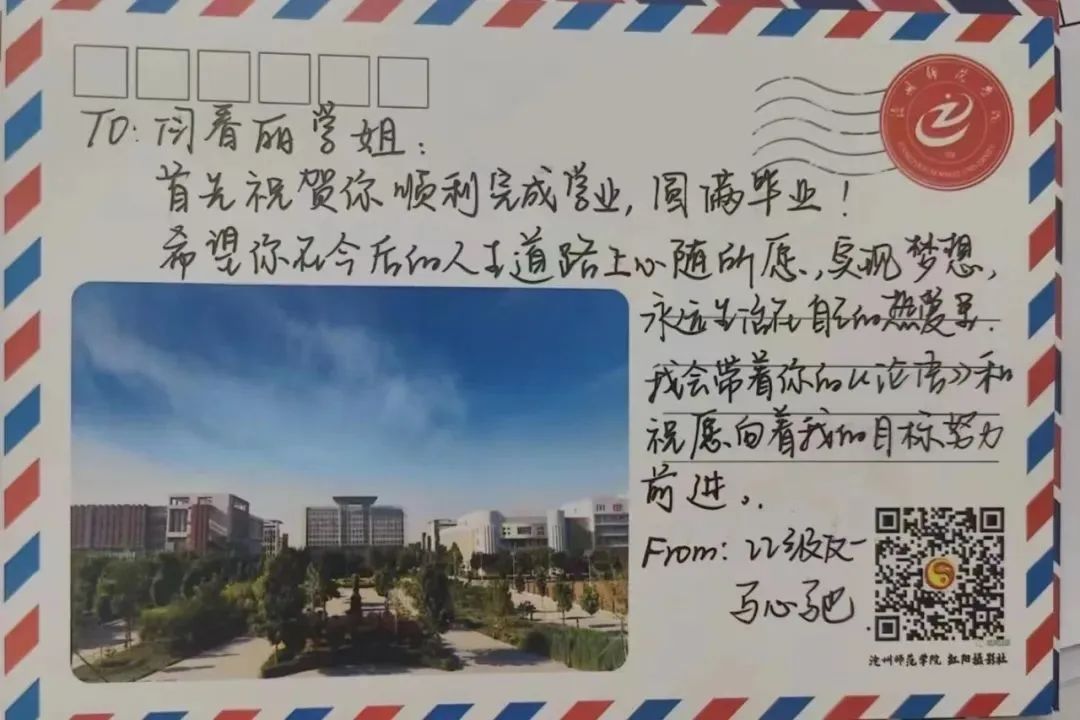 TO: 闫春丽学姐:
首先祝贺你顺利完成学业,圆满毕业!
希望你在今后的人生道路上心随所愿,实现梦想,
永远生活在自己的热爱里.
我会带着你的《论语》和
祝愿向着我的目标努力
前进。
From: 22级汉一
马心驰
沧州师范学院 红阳摄影社
沧州师范学院
CANGZHOU NORMAL UNIVERSITY